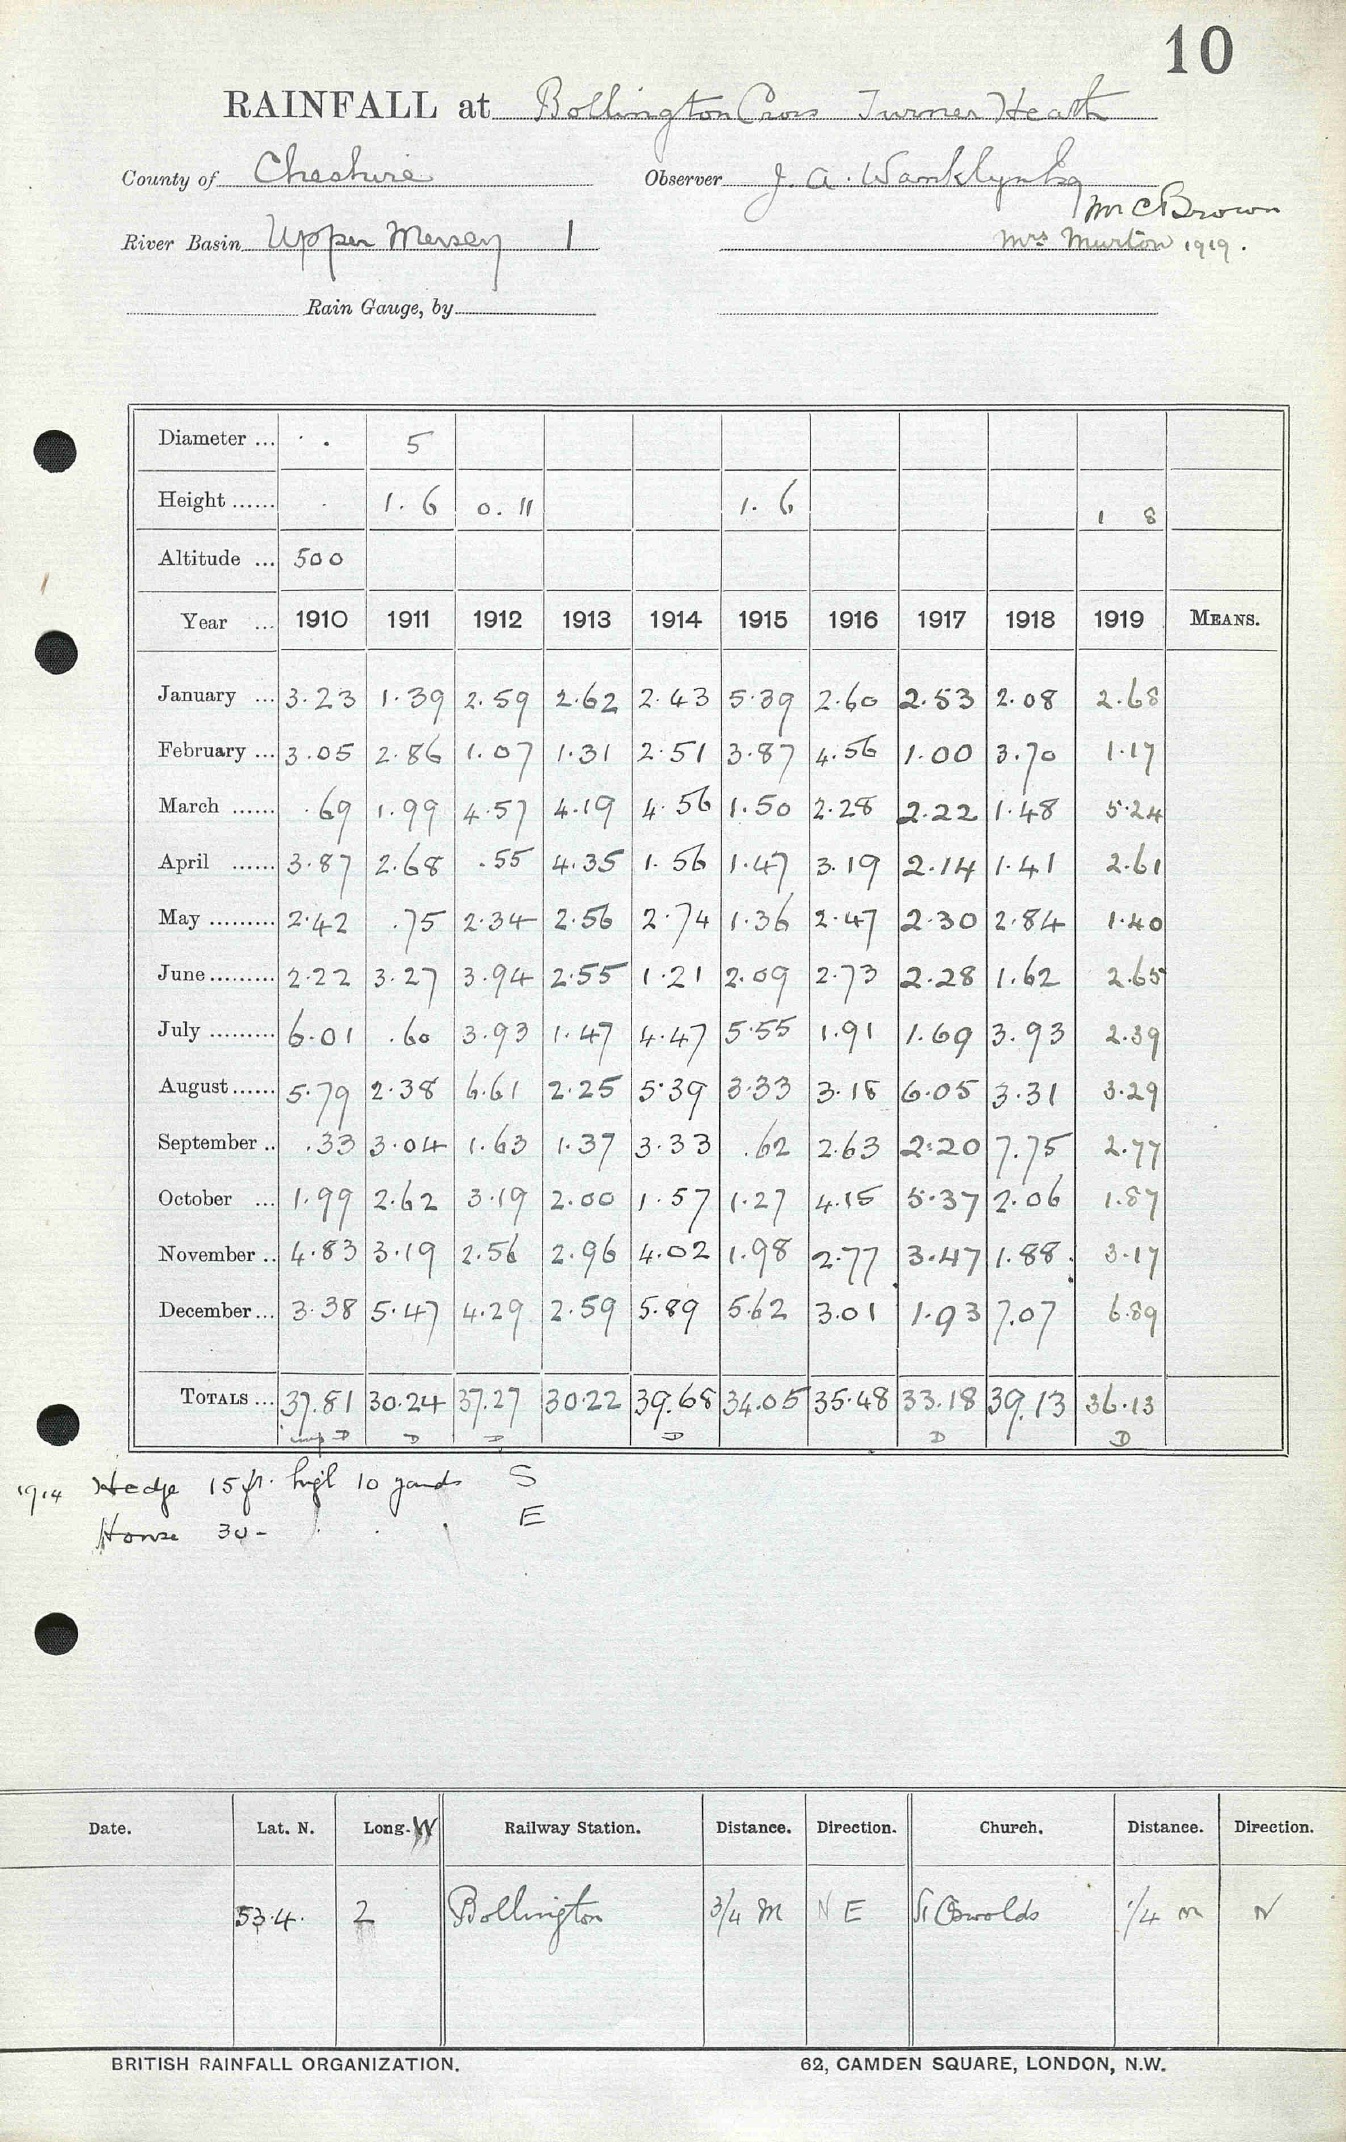 10
RAINFALL at Bollington Cross Turner Heath
County of Cheshire Observer J. A. Wanklyn Esq
Mr C Brown
River Basin Upper Mersey 1 Mrs Murton 1919.
Rain Gauge, by
Diameter ... . . 5
Height ...... . 1.6 0.11 1.6 1 8
Altitude ... 500
Year ... 1910 1911 1912 1913 1914 1915 1916 1917 1918 1919 MEANS.
January ... 3.23 1.39 2.59 2.62 2.43 5.39 2.60 2.53 2.08 2.68
February ... 3.05 2.86 1.07 1.31 2.51 3.87 4.56 1.00 3.70 1.17
March ...... .69 1.99 4.57 4.19 4.56 1.50 2.28 2.22 1.48 5.24
April ...... 3.87 2.68 .55 4.35 1.56 1.47 3.19 2.14 1.41 2.61
May ......... 2.42 .75 2.34 2.56 2.74 1.36 2.47 2.30 2.84 1.40
June ......... 2.22 3.27 3.94 2.55 1.21 2.09 2.73 2.28 1.62 2.65
July ......... 6.01 .60 3.93 1.47 4.47 5.55 1.91 1.69 3.93 2.39
August ...... 5.79 2.38 6.61 2.25 5.39 3.33 3.18 6.05 3.31 3.29
September .. .33 3.04 1.63 1.37 3.33 .62 2.63 2.20 7.75 2.77
October ... 1.99 2.62 3.19 2.00 1.57 1.27 4.15 5.37 2.06 1.87
November .. 4.83 3.19 2.56 2.96 4.02 1.98 2.77 3.47 1.88 3.17
December ... 3.38 5.47 4.29 2.59 5.89 5.62 3.01 1.93 7.07 6.89
TOTALS ... 37.81 30.24 37.27 30.22 39.68 34.05 35.48 33.18 39.13 36.13
D D D D D D
1914 Hedge 15 ft. high 10 yards S
House 30 - E
Date. Lat. N. Long. W Railway Station. Distance. Direction. Church. Distance. Direction.
53.4. 2 Bollington 3/4 M N E St Oswolds 1/4 m N
BRITISH RAINFALL ORGANIZATION. 62, CAMDEN SQUARE, LONDON, N.W.